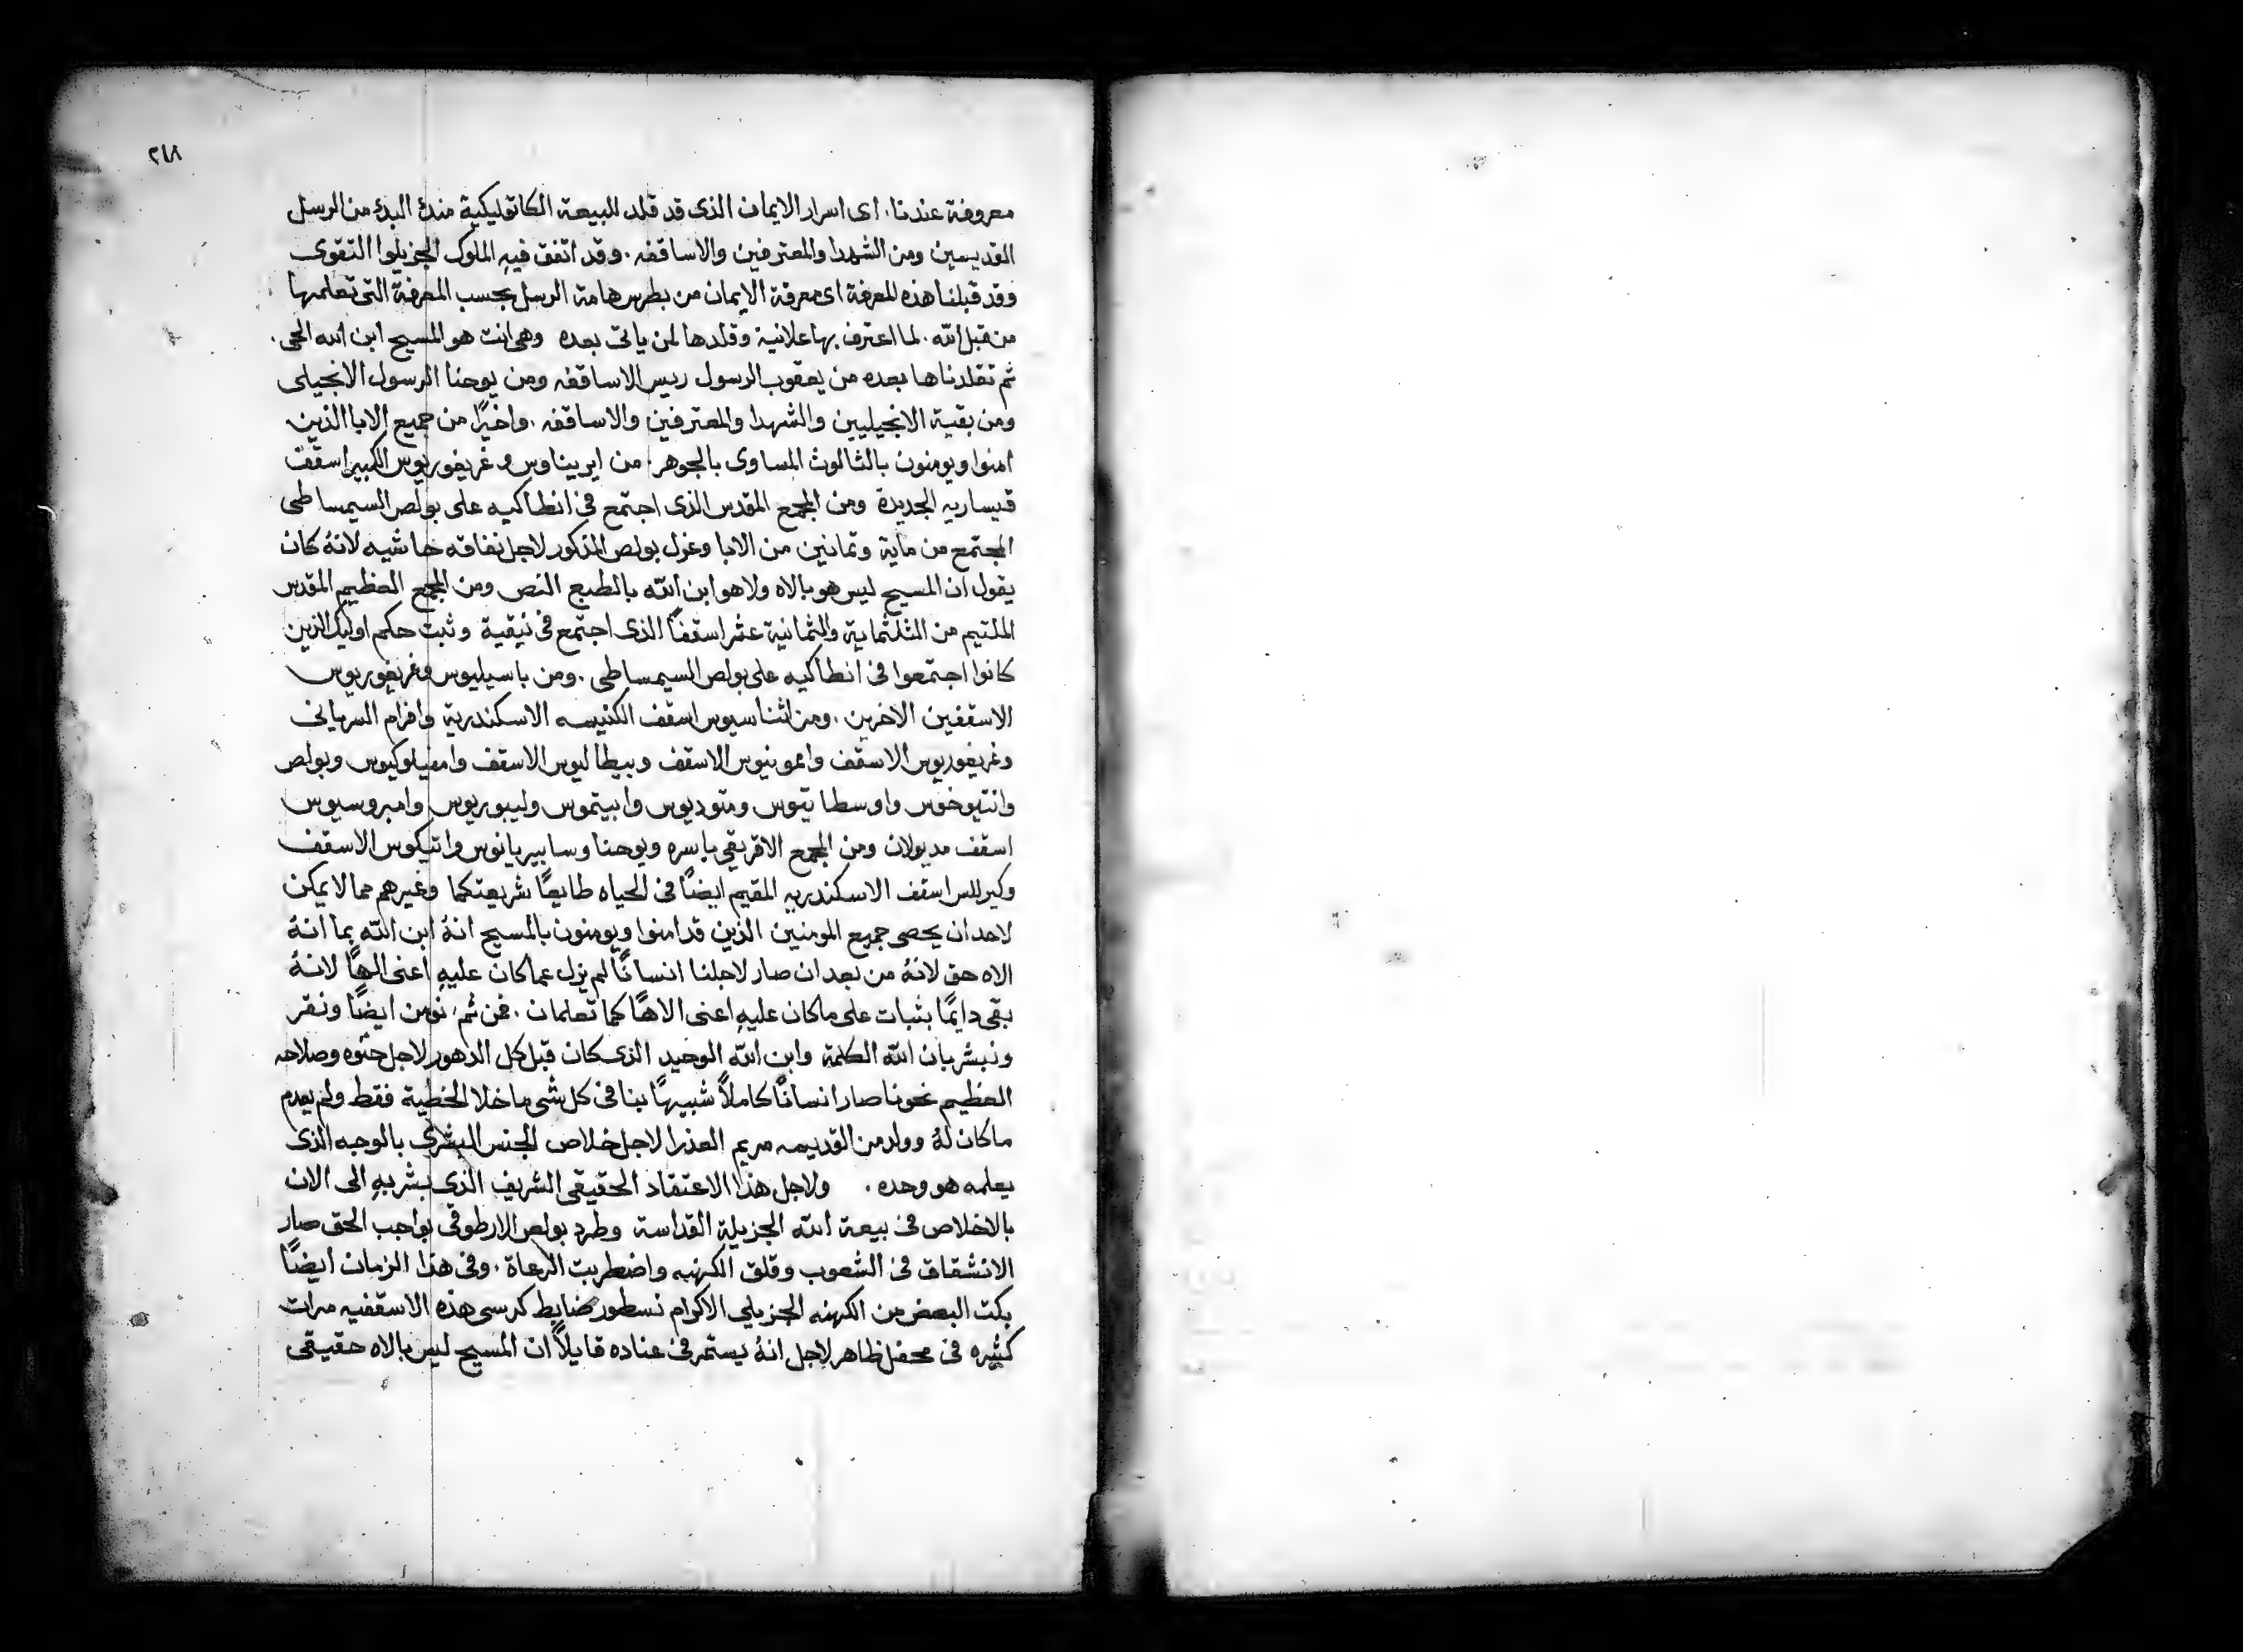 ٢٦٨
معروفة عندنا. اى اسرار الايمان الذى قد قلد للبيعة الكاتوليكية منذ البدء من الرسل
القديسين ومن الشهدا والمعترفين والاساقفه. وقد اتفق فيهِ الملوك الجزيلوا التقوى
وقد قبلنا هذه المعرفة اى معرفة الايمان من بطرس هامة الرسل بحسب المعرفة التى تعلمها
من قبل الله. لما اعترف بها علانية وقلدها لمن ياتى بعده وهى انت هو المسيح ابن الله الحى.
ثم تقلدناها بعده من يعقوب الرسول ريس الاساقفه ومن يوحنا الرسول الانجيلى
ومن بقية الانجيليين والشهدا والمعترفين والاساقفه. واخيرًا من جميع الابا الذين
امنوا ويومنون بالثالوث المساوى بالجوهر. من ايريناوس وغريغوريوس الكبير اسقف
قيساريه الجديدة ومن المجمع المقدس الذى اجتمع فى انطاكيه على بولص السيمساطى
المجتمع من ماية وثمانين من الابا وعزل بولص المذكور لاجل نفاقه حاشيه لانهُ كان
يقول ان المسيح ليس هو بالاه ولا هو ابن الله بالطبع النص ومن المجمع العظيم المقدس
الملتيم من الثلثماية والثمانية عشر اسقفًا الذى اجتمع فى نيقية وثبت حكم اوليك الذين
كانوا اجتمعوا فى انطاكيه على بولص السيمساطى. ومن باسيليوس وغريغوريوس
الاسقفين الاخرين. ومن اثناسيوس اسقف الكنيسه الاسكندرية وافرام السريانى
وغريغوريوس الاسقف وامونيوس الاسقف وبيطاليوس الاسقف وامفيلوكيوس وبولص
وانتيوخوس واوسطاتيوس ومتوديوس وابيتموس وليبوريوس وامبروسيوس
اسقف مديولان ومن المجمع الافريقي باسره ويوحنا وسابيريانوس واتيكوس الاسقف
وكيرللس اسقف الاسكندريه المقيم ايضًا فى الحياه طايعًا شريعتكما وغيرهم مما لا يمكن
لاحد ان يحصى جميع المومنين الذين قد امنوا ويومنون بالمسيح انهُ ابن الله بما انهُ
الاه حق لانهُ من بعد ان صار لاجلنا انسانًا لم يزل عما كان عليهِ اعنى الهًا لانهُ
بقى دايمًا بثبات على ما كان عليهِ اعنى الاهًا كما تعلمان. فمن ثم نومن ايضًا ونقر
ونبشر بان الله الكلمة وابن الله الوحيد الذى كان قبل كل الدهور لاجل حنوه وصلاحه
العظيم نحونا صار انسانًا كاملاً شبيهًا بنا فى كل شى ما خلا الخطية فقط ولم يعدم
ما كان لهُ وولد من القديسه مريم العذرا لاجل خلاص الجنس البشرى بالوجه الذى
يعلمه هو وحده. ولاجل هذا الاعتقاد الحقيقى الشريف الذى بشر بهِ الى الان
بالاخلاص فى بيعة الله الجزيلة القداسة وطرد بولص الارطوقى بواجب الحق صار
الانشقاق فى الشعوب وقلق الكهنه واضطربت الرعاة. وفى هذا الزمان ايضًا
بكت البعض من الكهنه الجزيلي الاكرام نسطور ضابط كرسى هذه الاسقفيه مرات
كثيره فى محفل ظاهر لاجل انهُ يستمر فى عناده قايلاً ان المسيح ليس بالاه حقيقى